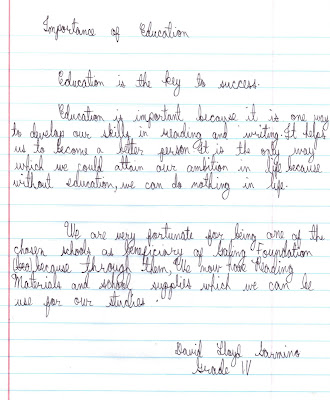 Importance of Education
Education is the key to success.
Education is important, because it is one way
to develop our skills in reading and writing. It helps
us to become a better person. It is the only way
which we could attain our ambition in life because
without education, we can do nothing in life.
We are very fortunate for being one of the
chosen schools as beneficiary of Foundation
because through them, We now have Reading
Materials and school supplies which we can be
use for our studies.
David Lloyd
Grade IV